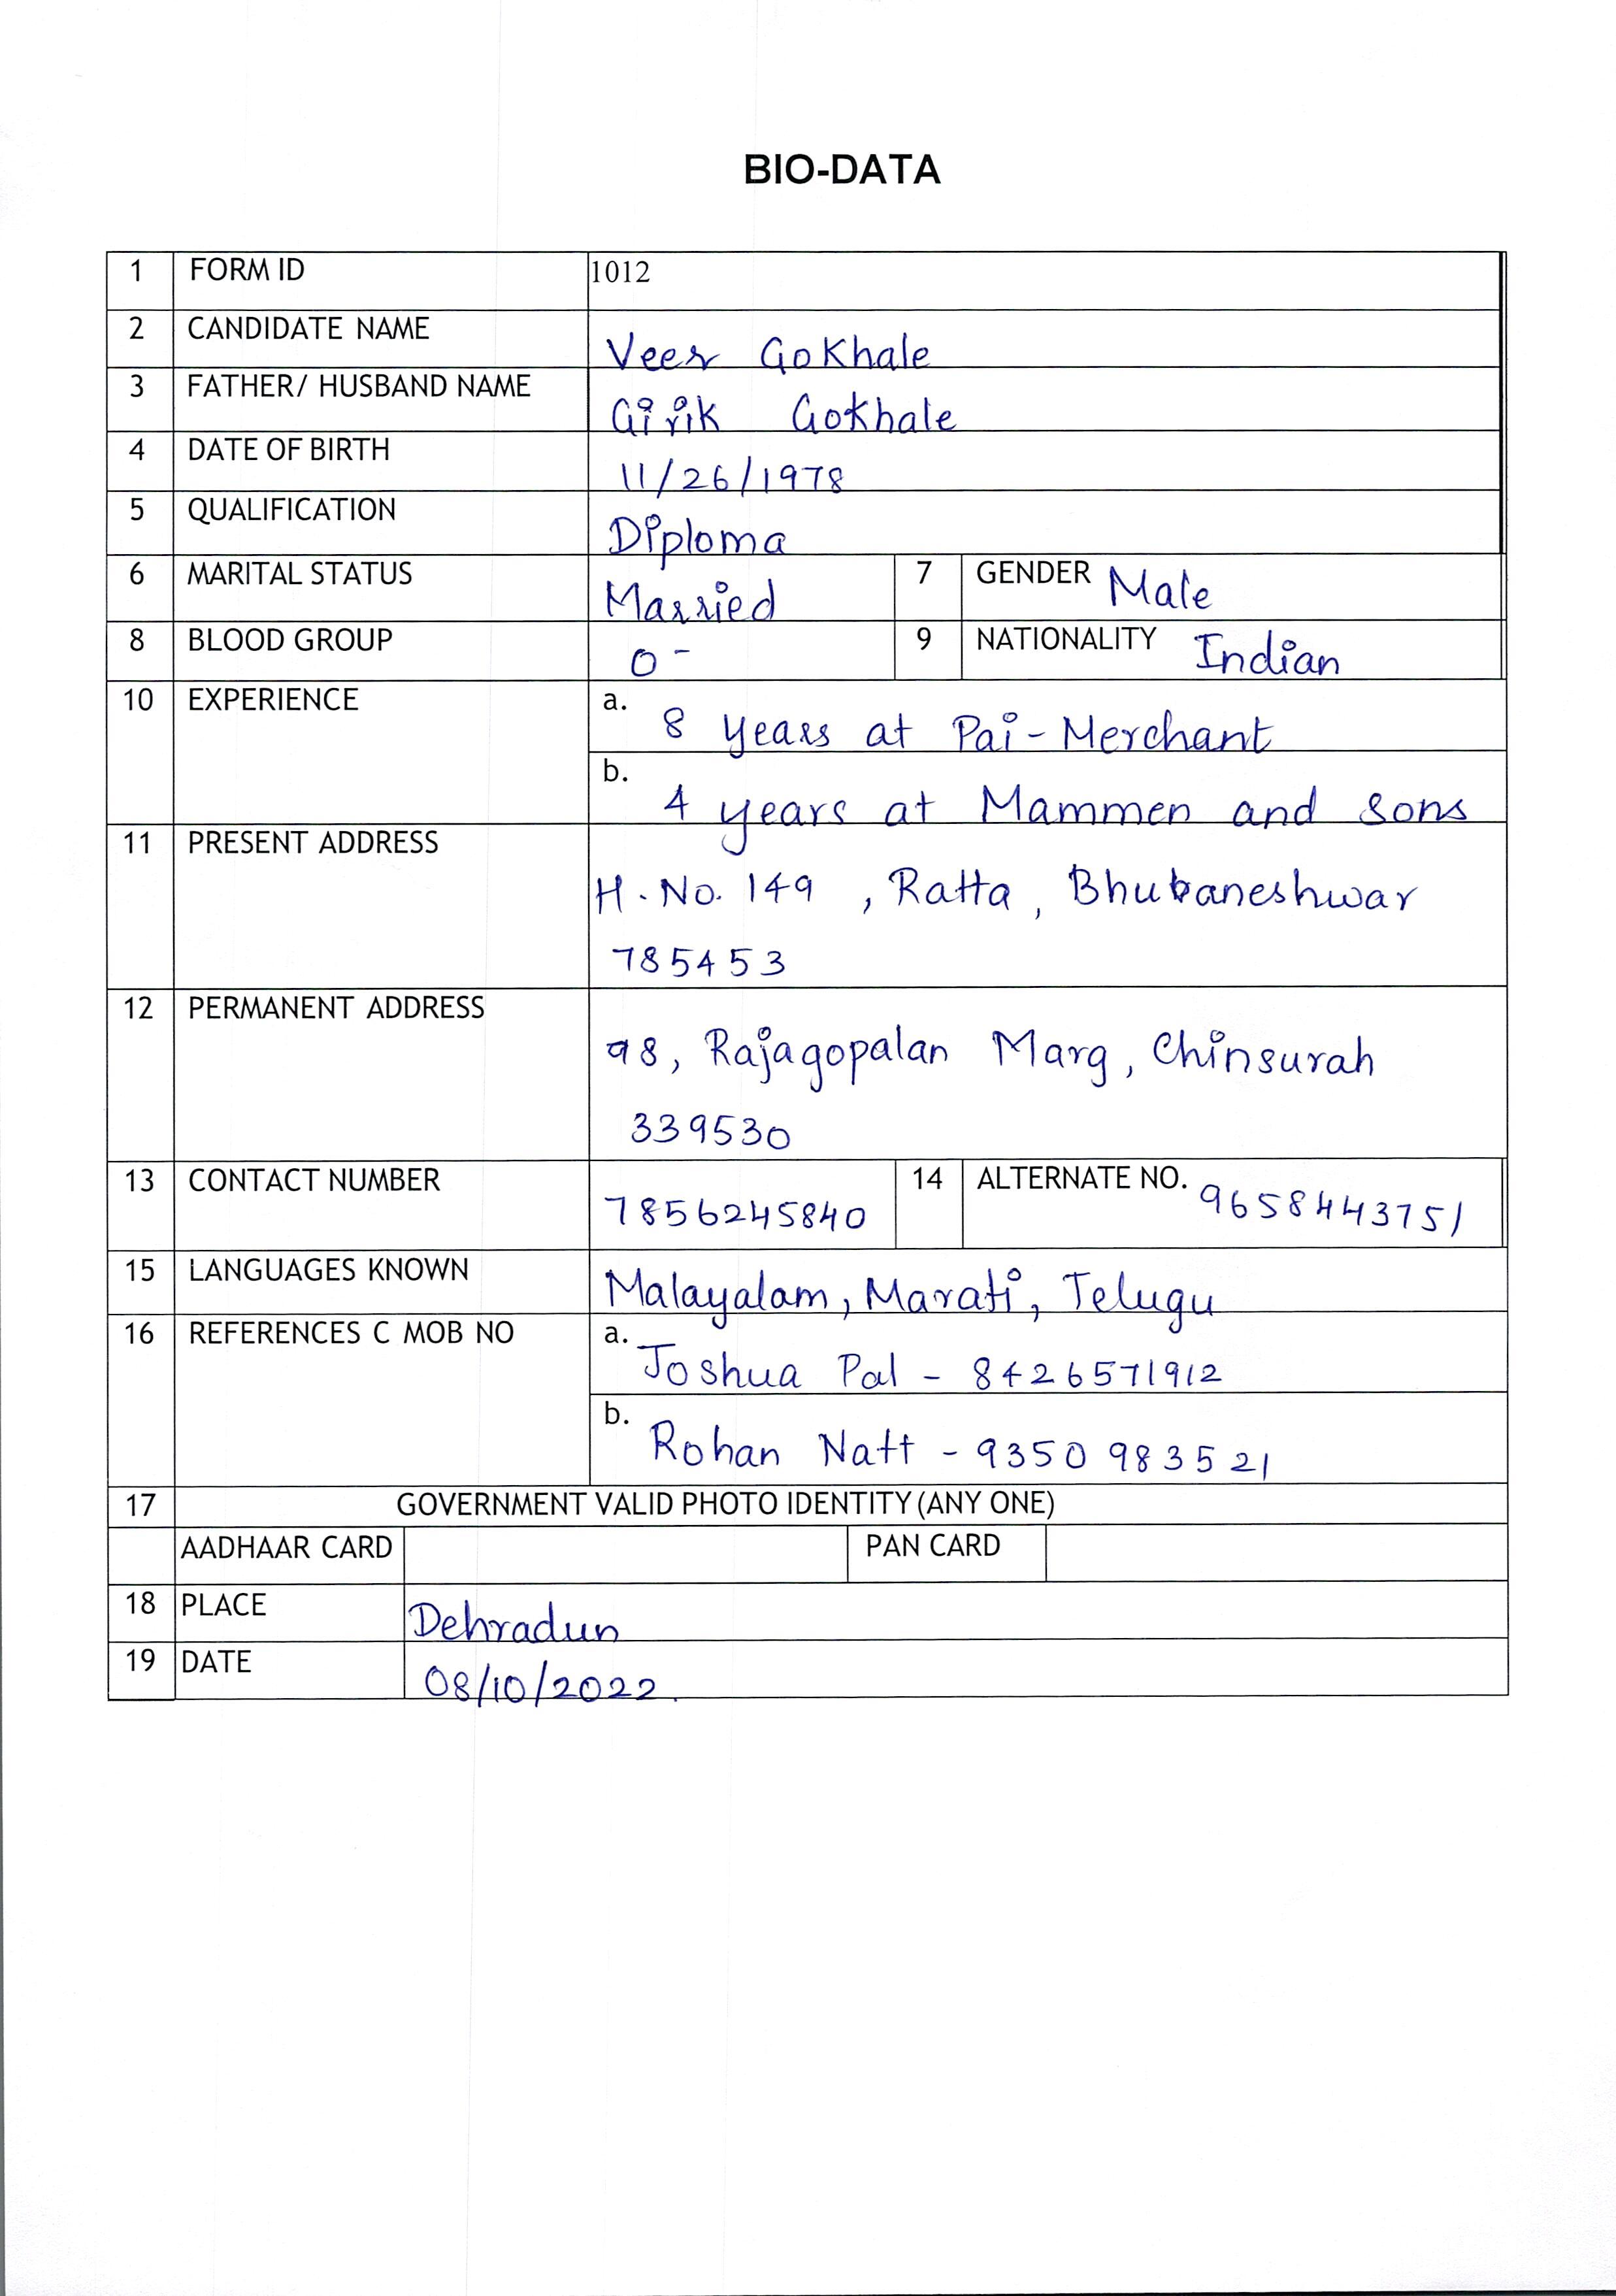 BIO-DATA
1 FORM ID 1012
2 CANDIDATE NAME Veer Gokhale
3 FATHER/ HUSBAND NAME Girik Gokhale
4 DATE OF BIRTH 11/26/1978
5 QUALIFICATION Diploma
6 MARITAL STATUS Married 7 GENDER Male
8 BLOOD GROUP O- 9 NATIONALITY Indian
10 EXPERIENCE a. 8 years at Pai-Merchant
b. 4 years at Mammen and sons
11 PRESENT ADDRESS
H.No. 149 , Ratta, Bhubaneshwar
785453
12 PERMANENT ADDRESS
98, Rajagopalan Marg, Chinsurah
339530
13 CONTACT NUMBER 7856245840 14 ALTERNATE NO. 9658443751
15 LANGUAGES KNOWN Malayalam, Marati, Telugu
16 REFERENCES C MOB NO a. Joshua Pal - 8426571912
b. Rohan Natt - 9350983521
17 GOVERNMENT VALID PHOTO IDENTITY (ANY ONE)
AADHAAR CARD PAN CARD
18 PLACE Dehradun
19 DATE 08/10/2022.